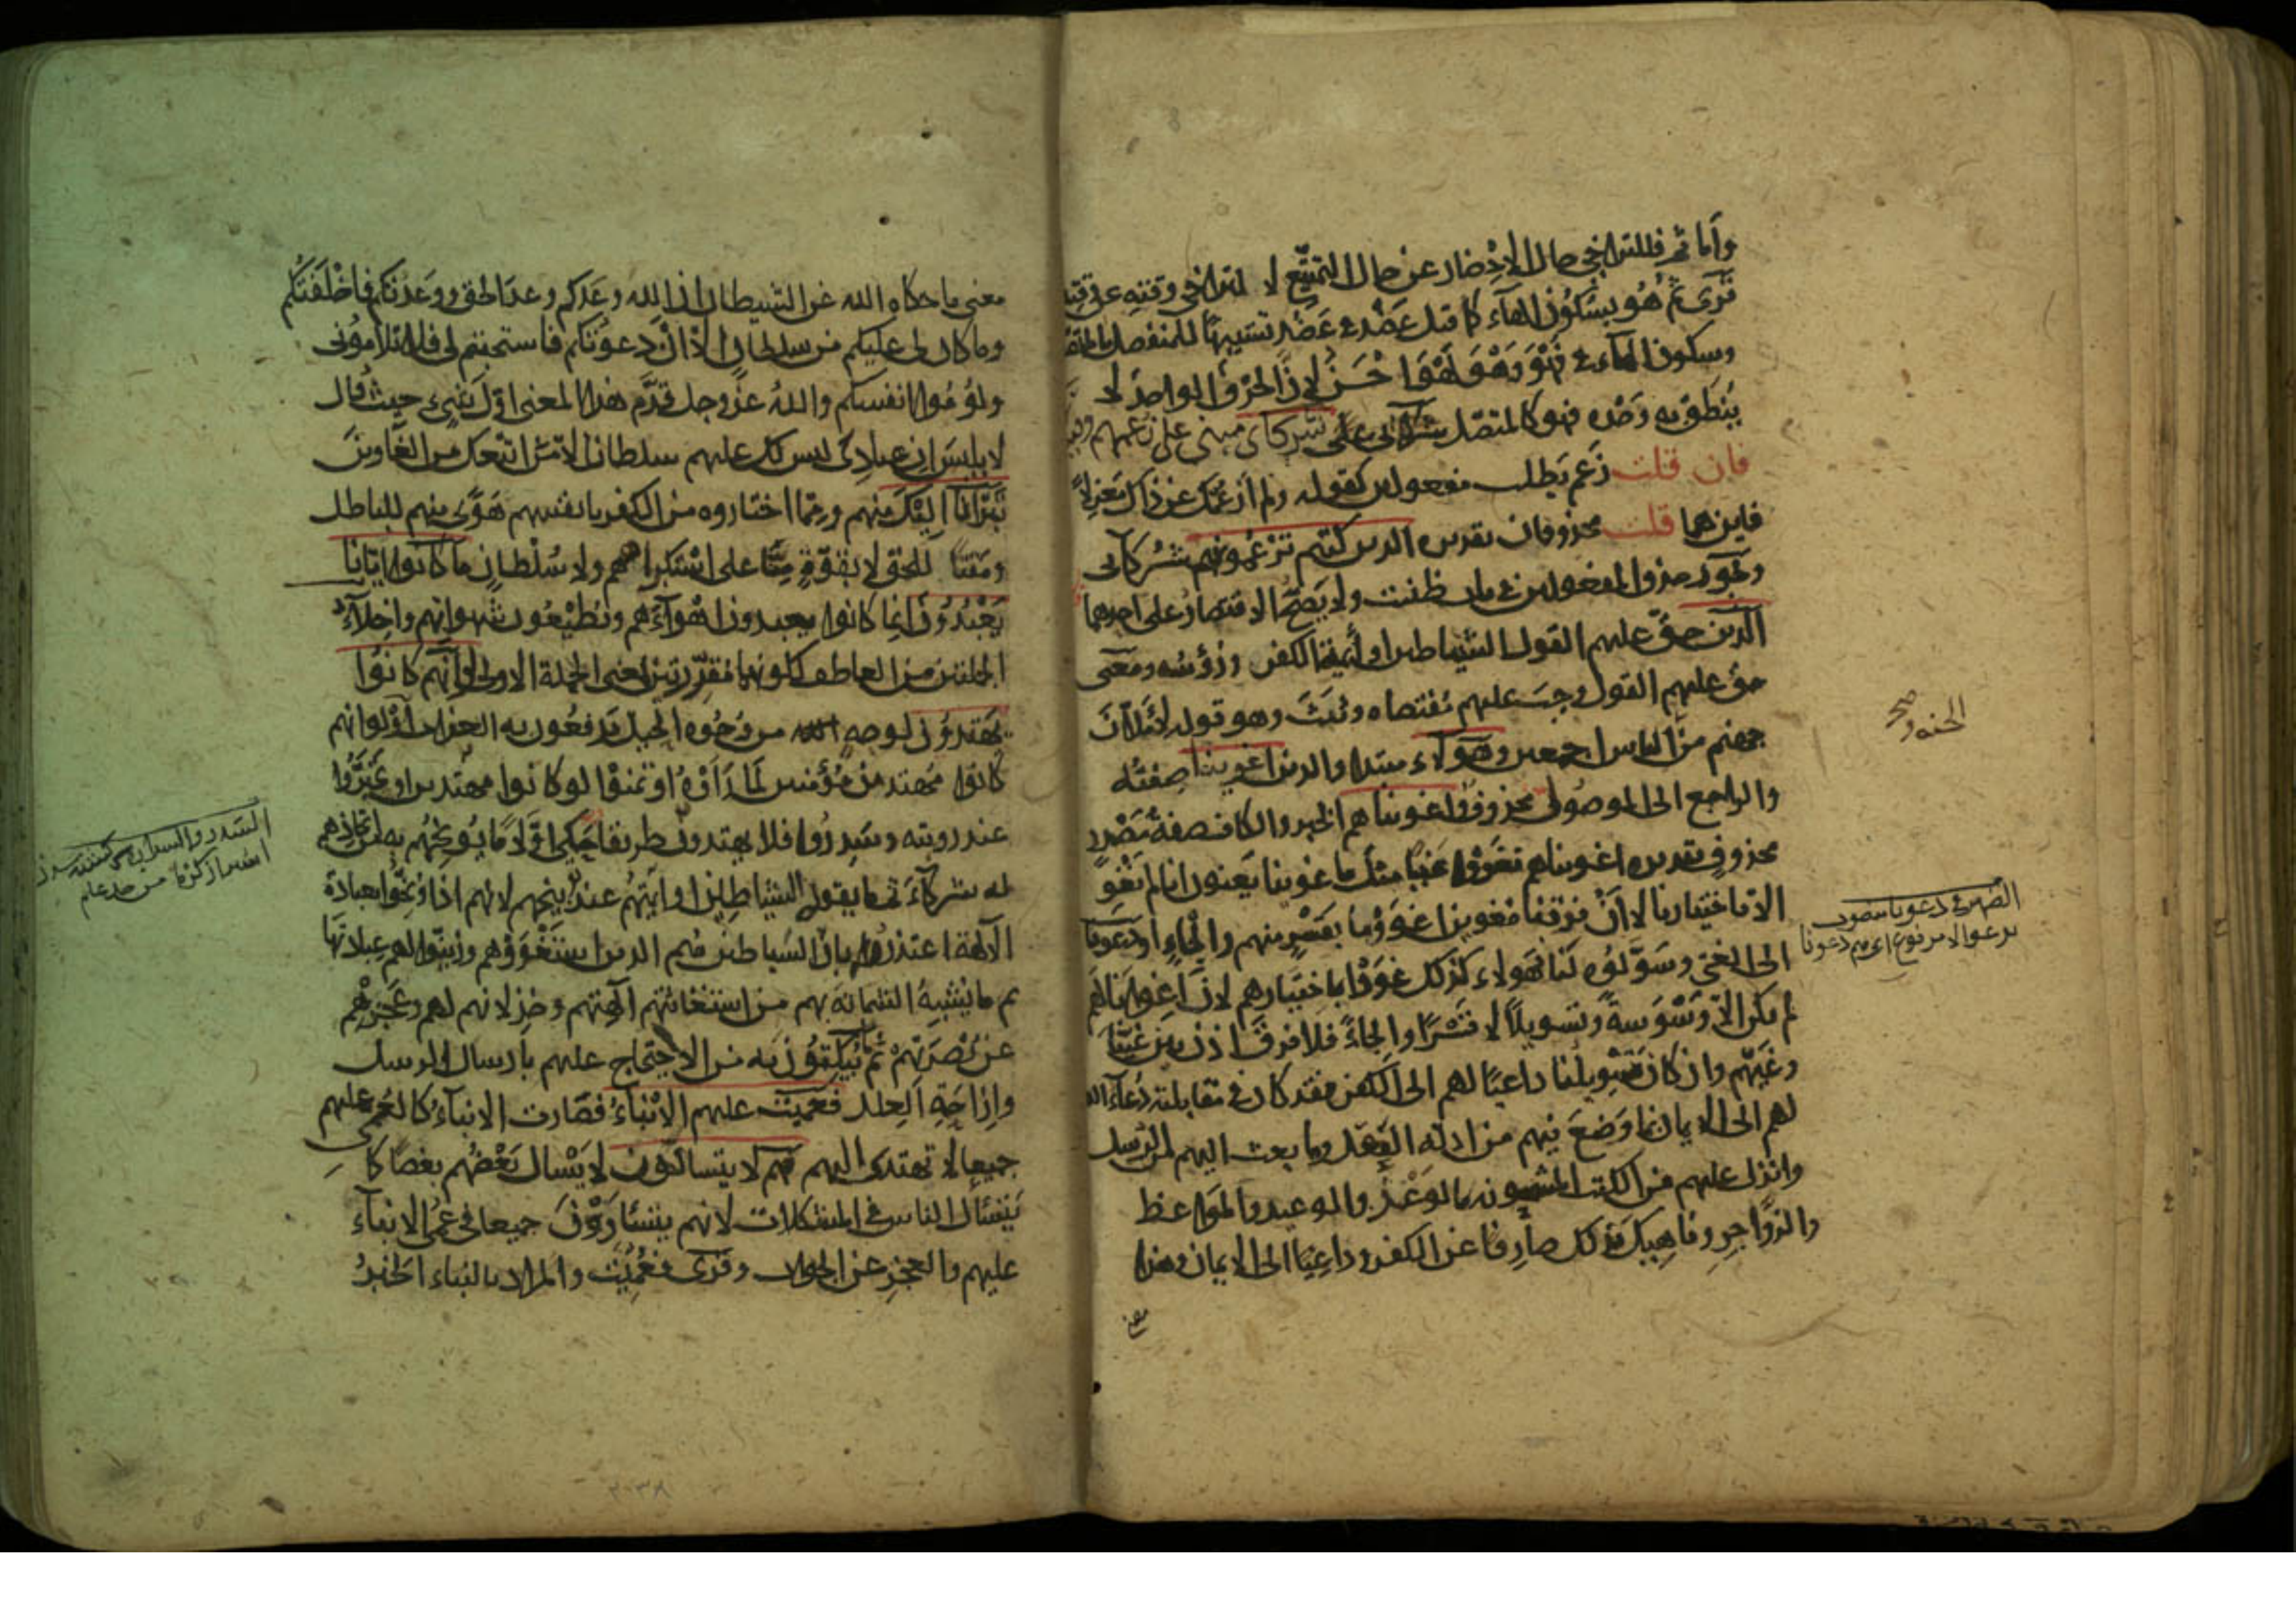 واما ثم فللتراخي حال الاحضار عن حال التمتع لا لتراخي وقته عن وقته
قرئ ثم هو بسكون الهاء كما قيل عضد في عضد تشبيها للمنفصل بالمتصل
وسكون الهاء في فهو وهو لهو احسن لان الحرف الواحد لا
ينطق به وحده فهو كالمتصل شركائى مبنى على زعمهم
فان قلت زعم يطلب مفعولين كقوله ولم ازعمك عن ذاك معزلا
فاين هما قلت محذوفان تقديره الذين كنتم تزعمونهم شركآئى
ويجوز حذف المفعولين في باب ظننت ولا يصح الاقتصار على احدهما
الذين حق عليهم القول الشياطين او أئمة الكفر ورؤسه ومعنى
حق عليهم القول وجب عليهم مقتضاه وثبت وهو قوله لاملان
جهنم من الناس اجمعين وهؤلاء مبتدا والذين اغوينا صفته
والراجع الى الموصول محذوف واغويناهم الخبر والكاف صفة مصدر
محذوف تقديره اغويناهم فغووا غيا مثل ما غوينا يعنون انا لم نغو
الا باختيارنا لا ان فوقنا مغوين اغوونا بقسر منهم والجاء او دعونا
الى الغي وسولوه لنا فهولاء كذلك غووا باختيارهم لان اغواءنا لهم
لم يكن الا وسوسة وتسويلا لا قسرا والجاء فلا فرق اذن بين غينا
وغيهم وان كان تسويلنا داعيا لهم الى الكفر فقد كان في مقابلته دعاء الله
لهم الى الايمان بما وضع فيهم من ادلة العقل وما بعث اليهم من الرسل
وانزل عليهم من الكتب المشحونه بالوعد والوعيد والمواعظ
والزواجر وناهيك بذلك صارفا عن الكفر وداعيا الى الايمان وهذا
معنى
الجنه و صح
الضمير في دعونا منصوب
معنى ما حكاه الله عن الشيطان ان الله وعدكم وعد الحق ووعدتكم فاخلفتكم
وما كان لي عليكم من سلطان الا ان دعوتكم فاستجبتم لي فلا تلوموني
ولوموا انفسكم والله عز وجل قدم هذا المعنى اول شىء حيث قال
لابليس ان عبادي ليس لك عليهم سلطان الا من اتبعك من الغاوين
تبرأنا اليك منهم ومما اختاروه من الكفر بانفسهم هوى منهم للباطل
ومقتا للحق لا بقوة منا على استكراههم ولا سلطان ما كانوا ايانا
يعبدون انما كانوا يعبدون اهواءهم ويطيعون شهواتهم واخلاء
الجملتين من العاطف لكونهما مقررتين لمعنى الجملة الاولى لو انهم كانوا
يهتدون لوجه من وجوه الحيل يدفعون به العذاب او لو انهم
كانوا مهتدين مؤمنين لما راوه او تمنوا لو كانوا مهتدين او تحيروا
عند رويته وسدروا فلا يهتدون طريقا حكى اولا ما يوبخهم به من اتخاذهم
له شركآء ثم ما يقوله الشياطين او ايمتهم عند توبيخهم لانهم اذا وبخوا بعبادة
الآلهة اعتذروا بان الشياطين هم الذين استغووهم وزينوا لهم عبادتها
ثم ما يشبه الشماتة بهم من استغاثتهم آلهتهم وخذلانهم لهم وعجزهم
عن نصرتهم ثم ما يبكتون به من الاحتجاج عليهم بارسال الرسل
وازاحة العلل فعميت عليهم الانباء فصارت الانباء كالعمى عليهم
جميعا لا تهتدى اليهم فهم لا يتسائلون لا يسال بعضهم بعضا كما
يتسائل الناس في المشكلات لانهم يتساوون جميعا في عمى الانباء
عليهم والعجز عن الجواب وقرئ فعميت والمراد بالنباء الخبر
٢٠٣٨